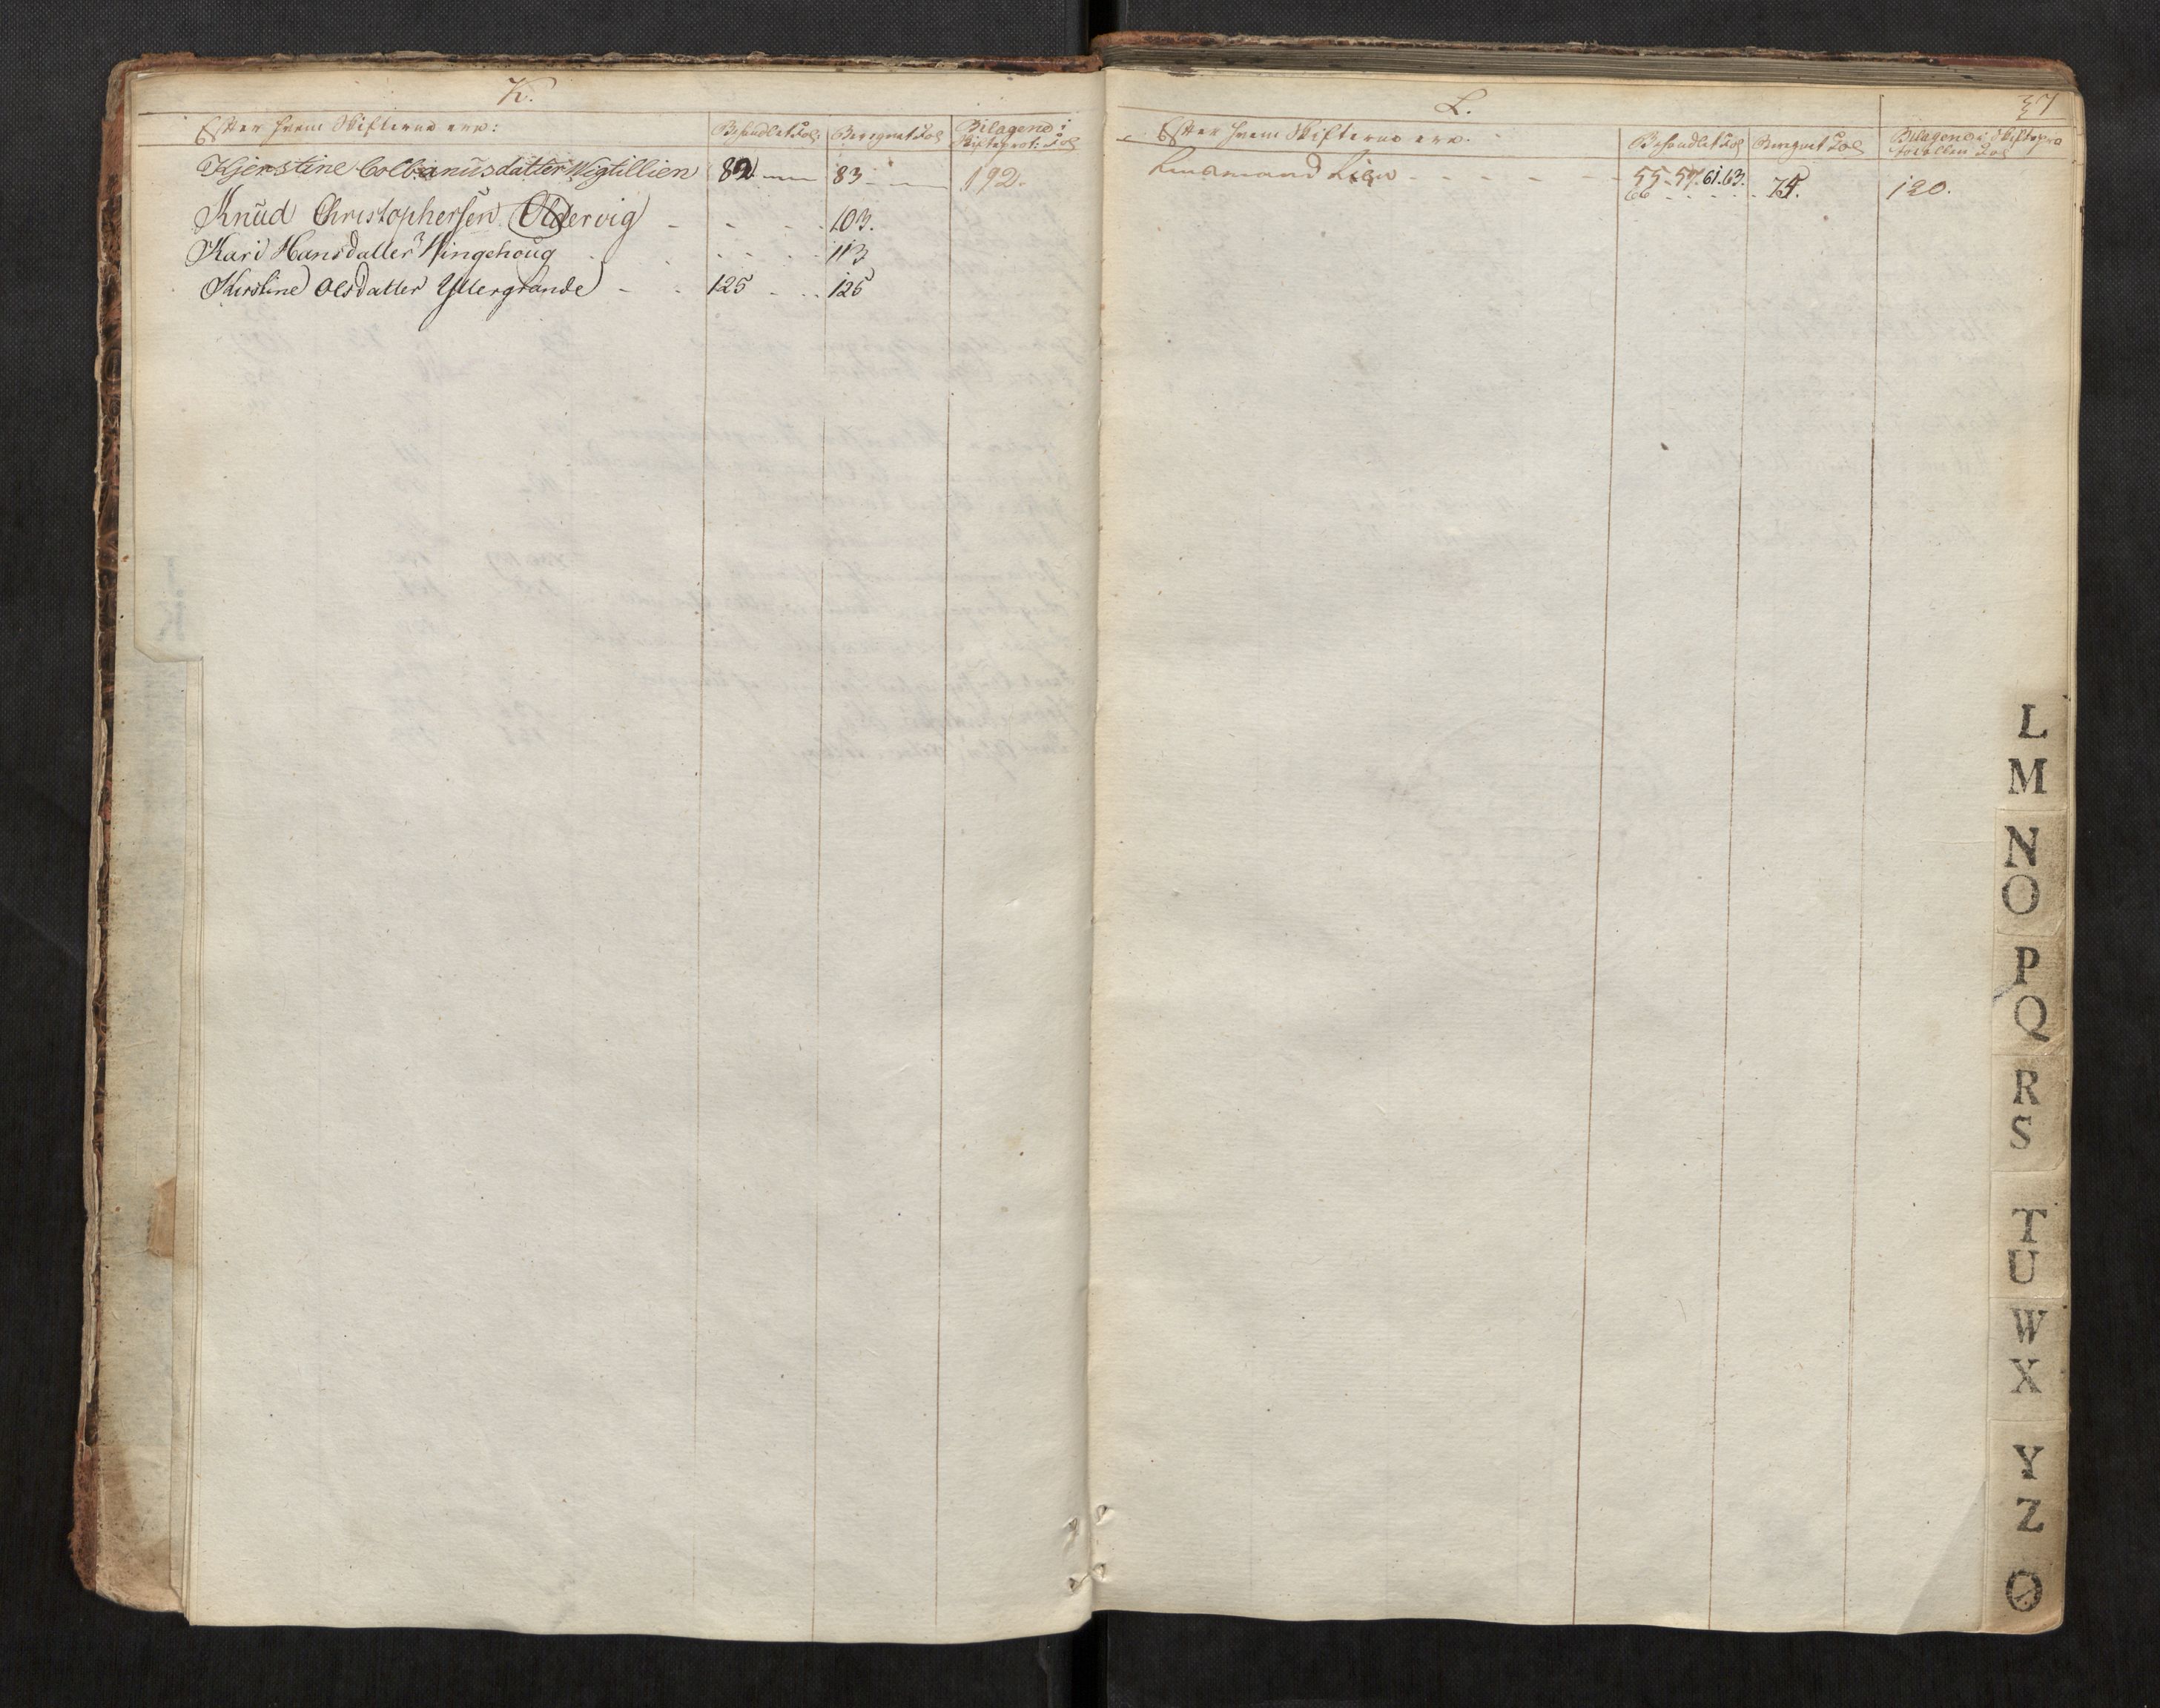 K.
Efter hvem Skifterne ere:
Behandlet Fol
Beregnet Fol
Bilagene i
Skifteprot: Fol
Kjerstine Colbanusdatter Wigtillien 82 83 192.
Knud Christophersen Oldervig - - - 103.
Kari Hansdatter Wingehoug 113
Kirstine Olsdatter Yttergrande - - 125 - .. 125
37
L.
Efter hvem Skifterne ere.
Behandlet Fol
Beregnet Fol
Bilagene i Skiftepro
tocollen Fol
Lensmand Lien - - - - - 55-57.61.63.
66 - - - - - 75. 120.
L
M
N
O
P
Q
R
S
T
U
W
X
Y
Z
Ø